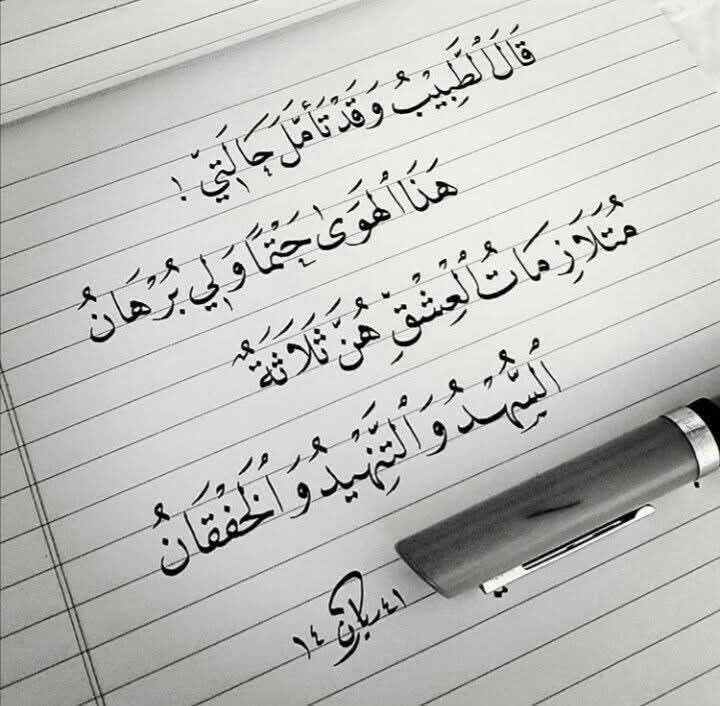 قَالَ الْطَّبِيْبُ وَقَدْ تَأَمَّلَ حَالَتِيْ :
هَذَا الْهَوَى حَتْمًا وَلِي بُرْهَانُ
مُتَلَازِمَاتُ الْعِشْقِ هُنَّ ثَلَاثَةٌ
الْسُّهْدُ وَالْتَّنْهِيْدُ وَالْخَفَقَانُ
١٤ ٤١